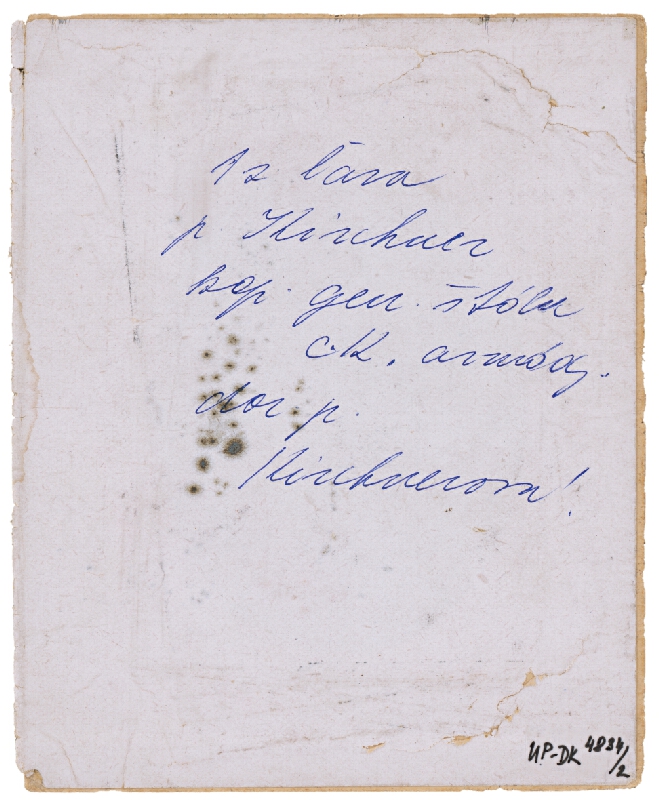 1z ľava
p Kirchner
kap. gen. štábu
c.K. armády.
dar p.
Kirchnerova!
UP-DK 4834/2